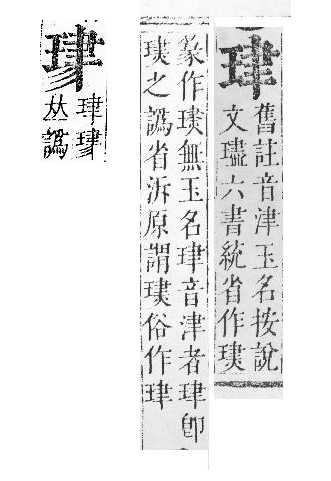 珒
舊註音津玉名按說
文璶六書統省作
篆作無玉名珒音津者珒卽
之譌省泝原謂俗作珒
珒
𠀤譌